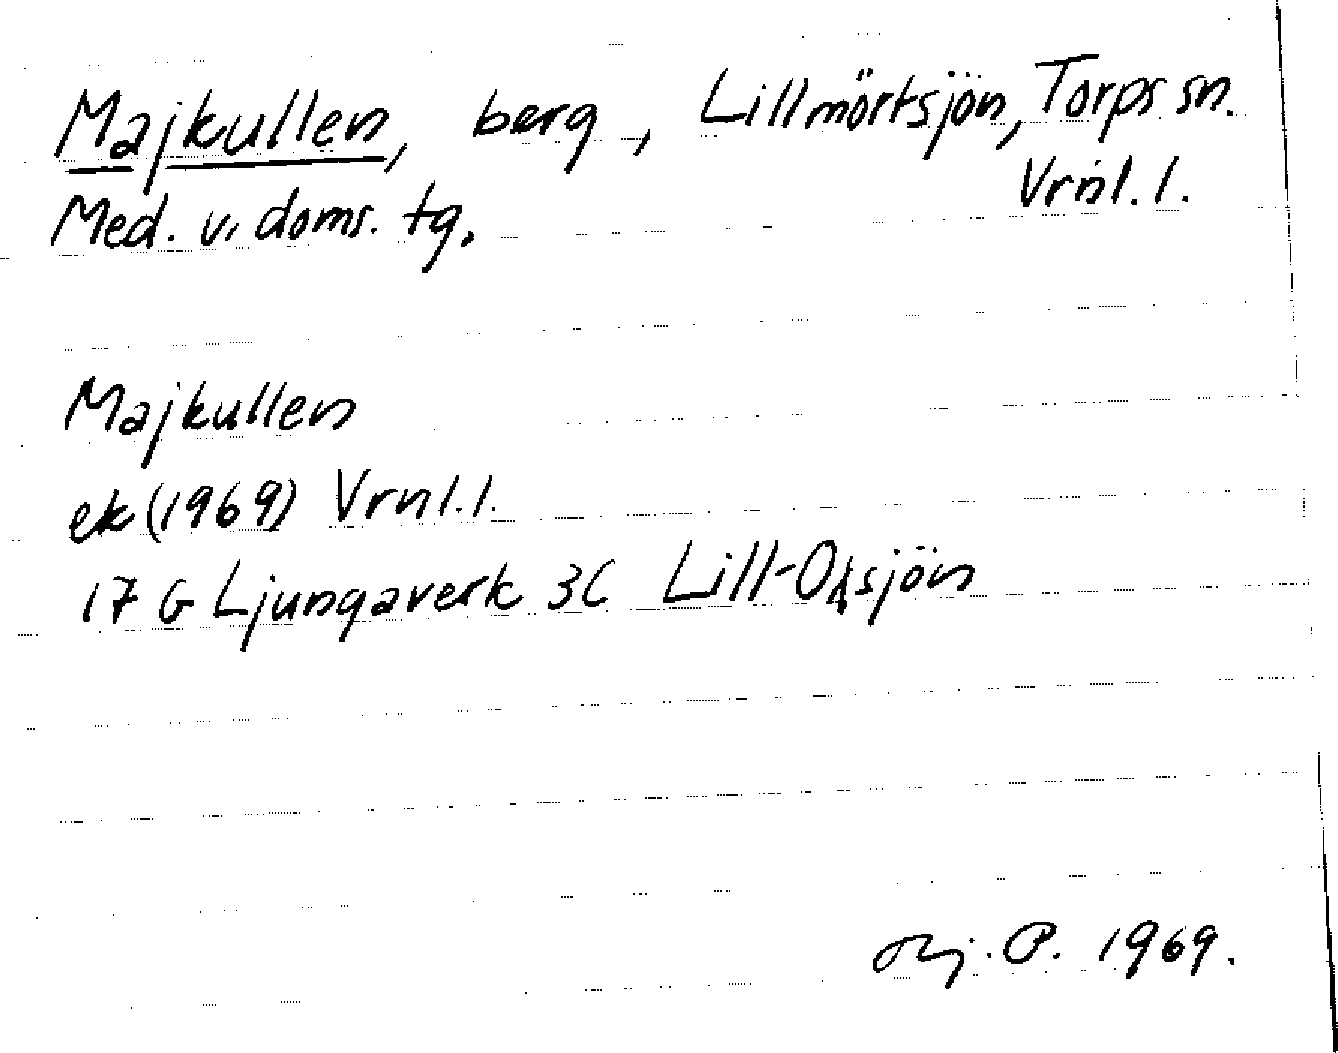 Majkullen, berg, Lillmörtsjön, Torps sn.
Vrnl. l.
Med. v. doms. tg.
Majkullen
ek (1969) Vrnl. l.
17 G Ljungaverk 3C
P. 1969.